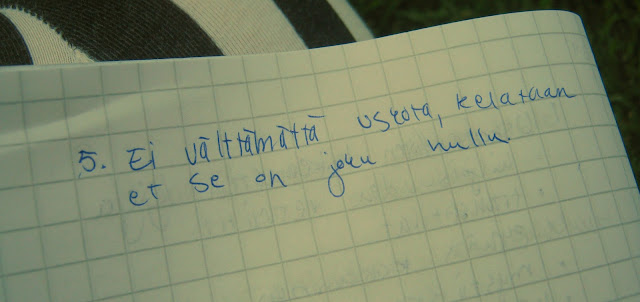 5. Ei välttämättä uskota, kelataan
et se on joku hullu.